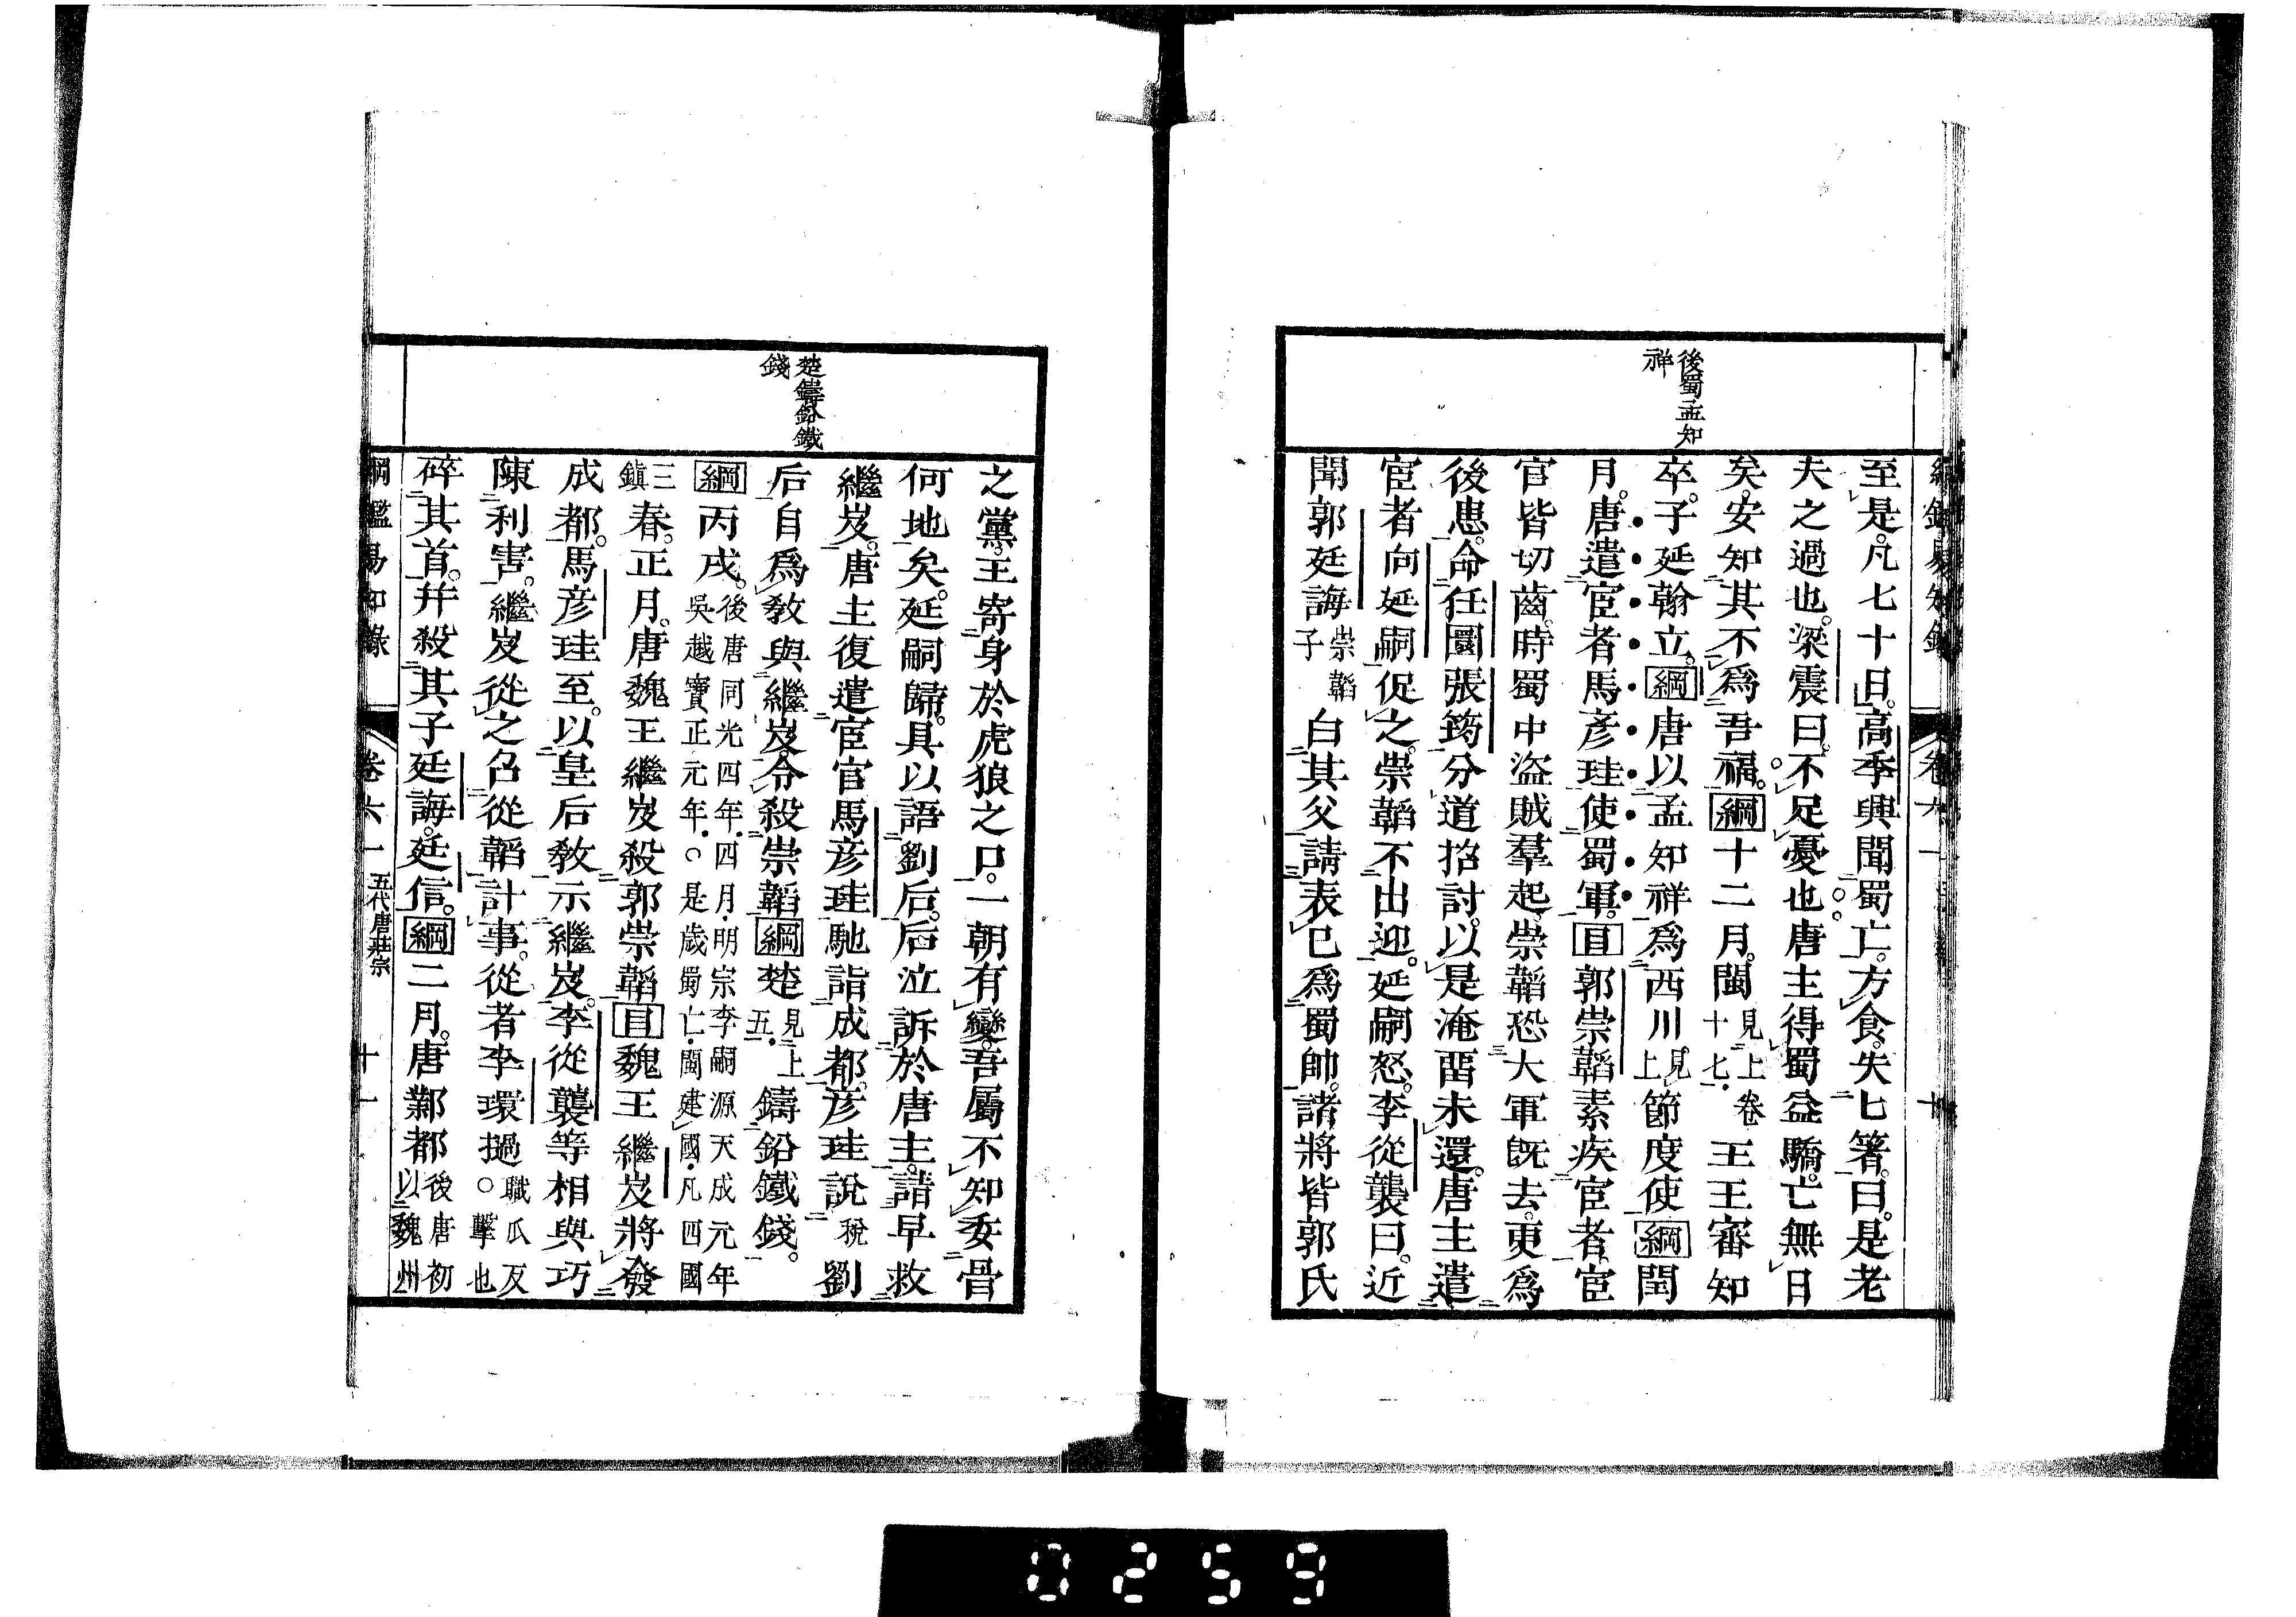 後蜀孟知
祥
至是。凡七十日。高季興聞蜀亡。方食。失匕箸。曰。是老
夫之過也。梁震曰。不足憂也。唐主得蜀益驕。亡無日
矣。安知其不爲吾福。綱十二月。閩見上卷十七王王審知
卒。子延翰立。綱唐以孟知祥爲西川見上節度使綱閏
月。唐遣宦者馬彥珪使蜀軍。目郭崇韜素疾宦者。宦
官皆切齒。時蜀中盜賊羣起。崇韜恐大軍既去。更爲
後患。命任圜張筠分道招討。以是淹畱未還。唐主遣
宦者向延嗣促之。崇韜不出迎。延嗣怒。李從襲曰。近
聞郭廷誨崇韜子白其父請表己爲蜀帥。諸將皆郭氏
楚鑄鉛鐵
錢
之黨。王寄身於虎狼之口。一朝有變。吾屬不知委骨
何地矣。延嗣歸。具以語劉后。后泣訴於唐主。請早救
繼岌。唐主復遣宦官馬彥珪馳詣成都。彥珪說稅劉
后自爲教與繼岌。令殺崇韜綱楚見上五鑄鉛鐵錢。
綱丙戌。後唐同光四年。四月。明宗李嗣源天成元年吳越寶正元年。○是歲蜀亡。閩建國。凡四國
三鎮春。正月。唐魏王繼岌殺郭崇韜目魏王繼岌將發
成都。馬彥珪至。以皇后教示繼岌。李從襲等相與巧
陳利害。繼岌從之召從韜計事。從者李環撾職瓜反○擊也
碎其首。并殺其子廷誨。廷信。綱二月。唐鄴都後唐初以魏州
綱鑑易知錄 卷六一 五代唐莊宗 十一